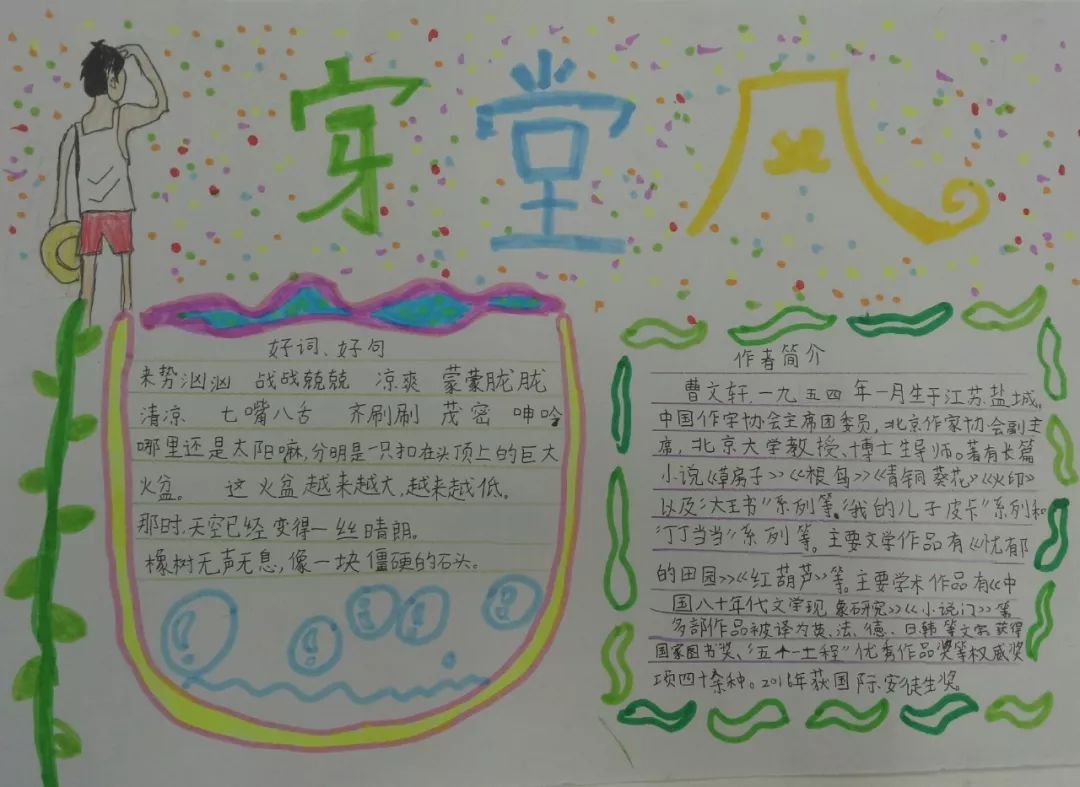 穿堂风
好词、好句
来势汹汹 战战兢兢 凉爽 蒙蒙胧胧
清凉 七嘴八舌 齐刷刷 茂密 呻吟
哪里还是太阳嘛,分明是一只扣在头顶上的巨大
火盆。 这火盆越来越大,越来越低。
那时,天空已经变得一丝晴朗。
橡树无声无息,像一块僵硬的石头。
作者简介
曹文轩,一九五四年一月生于江苏盐城。
中国作家协会主席团委员,北京作家协会副主
席,北京大学教授、博士生导师。著有长篇
小说《草房子》《根鸟》《青铜葵花》《火印》
以及“大王书”系列等。“我的儿子皮卡”系列和
“丁丁当当”系列等。主要文学作品有《忧郁
的田园》《红葫芦》等。主要学术作品有《中
国八十年代文学现象研究》《小说门》等
多部作品被译为英、法、德、日韩等文字。获得
国家图书奖、“五个一工程”优秀作品奖等权威奖
项四十余种。2016年获国际安徒生奖。